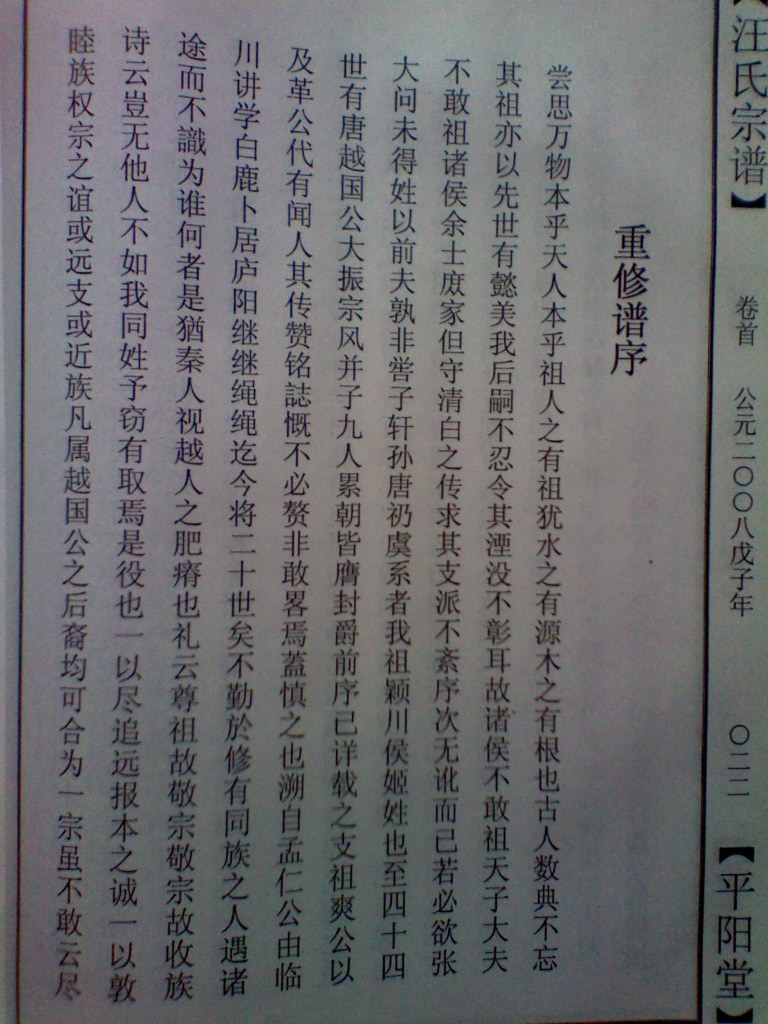 【汪氏宗谱】
卷首
公元二〇〇八戊子年
〇二二
【平阳堂】
重修谱序
尝思万物本乎天人本乎祖人之有祖犹水之有源木之有根也古人数典不忘
其祖亦以先世有懿美我后嗣不忍令其湮没不彰耳故诸侯不敢祖天子大夫
不敢祖诸侯余士庶家但守清白之传求其支派不紊序次无讹而已若必欲张
大问未得姓以前夫孰非喾子轩孙唐礽虞系者我祖颖川侯姬姓也至四十四
世有唐越国公大振宗风并子九人累朝皆膺封爵前序已详载之支祖爽公以
及革公代有闻人其传赞铭誌慨不必赘非敢畧焉蓋慎之也溯自孟仁公由临
川讲学白鹿卜居庐阳继继绳绳迄今将二十世矣不勤於修有同族之人遇诸
途而不識为谁何者是猶秦人视越人之肥瘠也礼云尊祖故敬宗敬宗故收族
诗云豈无他人不如我同姓予窃有取焉是役也一以尽追远报本之诚一以敦
睦族权宗之谊或远支或近族凡属越国公之后裔均可合为一宗虽不敢云尽